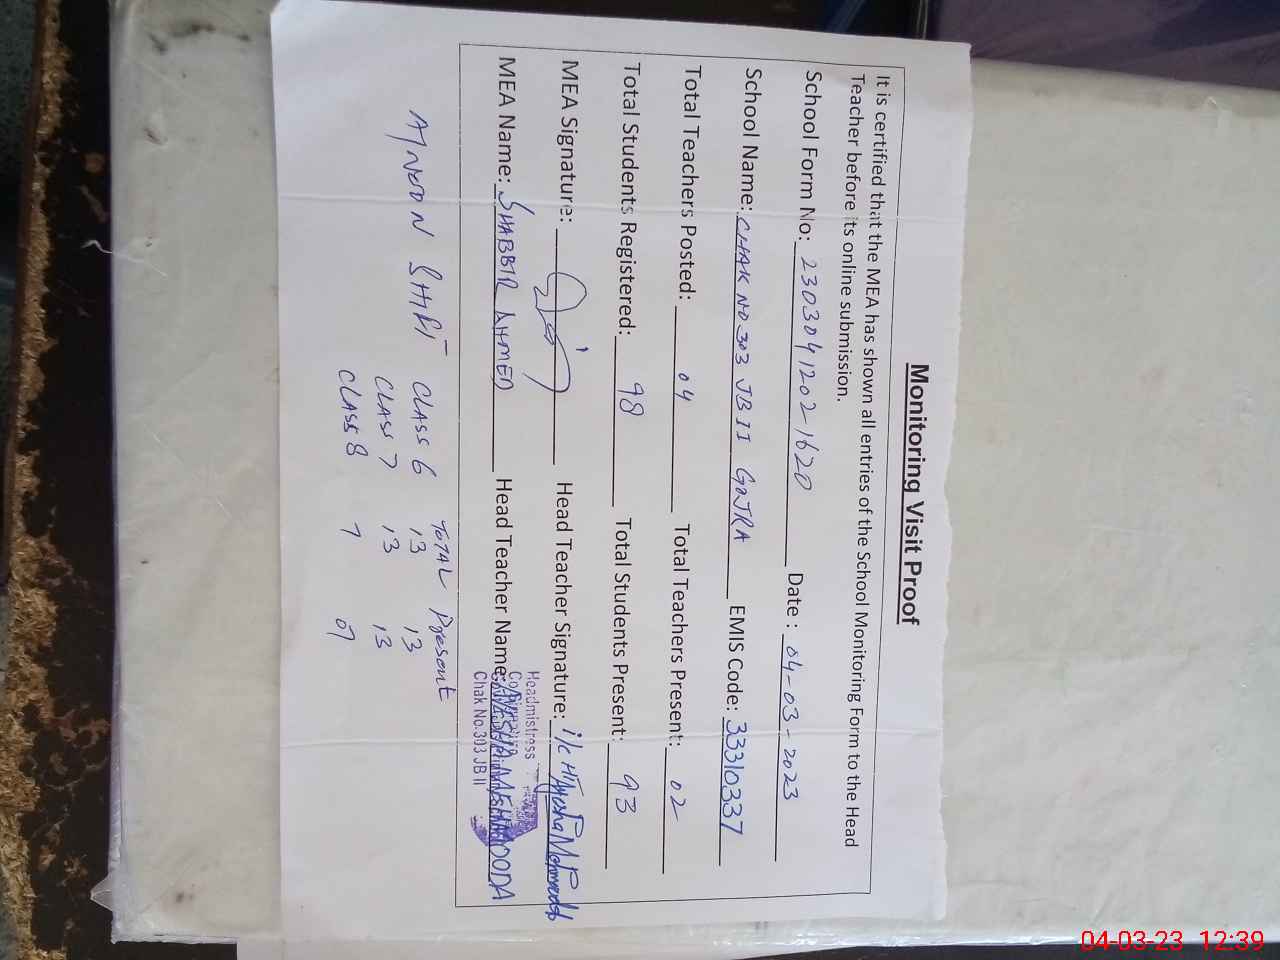 Monitoring Visit Proof
It is certified that the MEA has shown all entries of the School Monitoring Form to the Head
Teacher before its online submission.
School Form No: 2303041202-1620 Date : 04-03-2023
School Name: CHAK NO 303 JB II GOJRA EMIS Code: 33310337
Total Teachers Posted: 04 Total Teachers Present: 02
Total Students Registered: 98 Total Students Present: 93
MEA Signature: Head Teacher Signature: i/c HT Ayesha
MEA Name: SHABBIR AHMED Head Teacher Name:
Headmistress
Chak No.303 JB II
TOTAL Present
CLASS 6 13 13
CLASS 7 13 13
CLASS 8 7 07
04-03-23 12:39